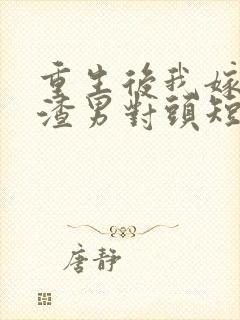 重生後我嫁
渣男對頭短
唐靜